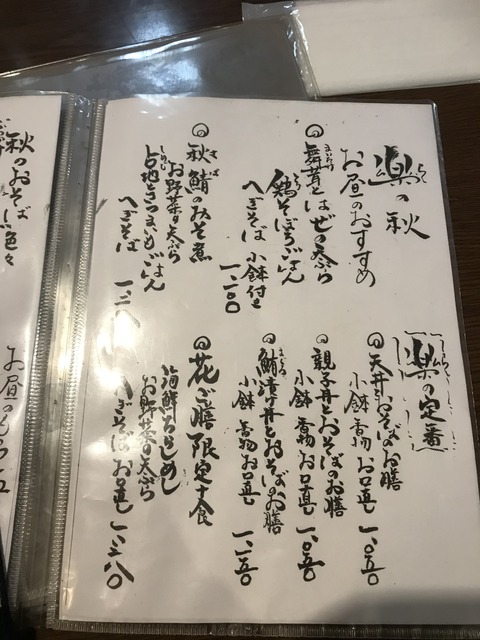 楽の秋
らく
お昼のおすすめ
◎舞茸とはぜの天ぷら
まいたけ
鶏そぼろごはん
とり
へぎそば 小鉢付き
一、一〇〇
◎秋鯖のみそ煮
さば
お野菜の天ぷら
占地とさつまいもごはん
しめじ
へぎそば 一、二八〇
楽の定番
らく
◎天丼とおそばのお膳
小鉢 香物 お口直し 一、〇五〇
◎親子丼とおそばのお膳
小鉢 香物 お口直し 一、〇五〇
◎鮪漬け丼とおそばのお膳
まぐろ
小鉢 香物 お口直し 一、一五〇
◎花ご膳 限定十食
海鮮ちらしめし
お野菜の天ぷら
へぎそば お口直し 一、三八〇
秋のおそば色々
お昼の